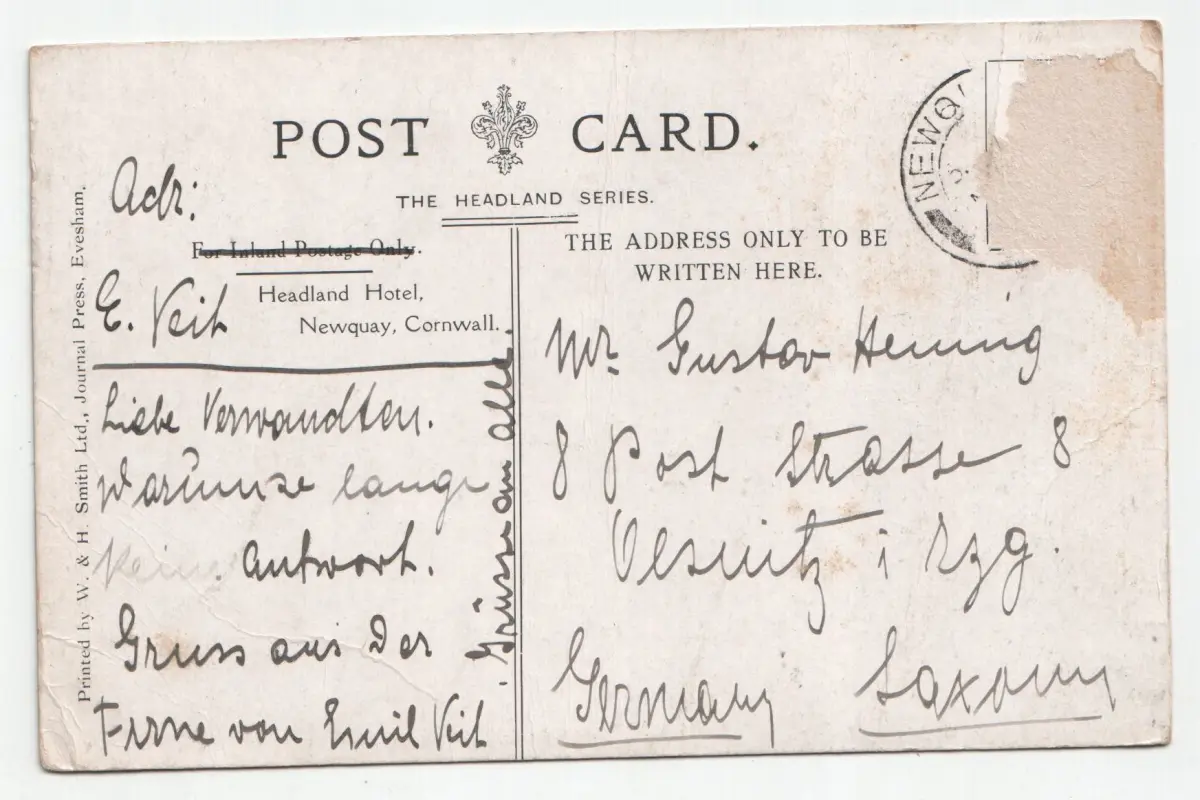 POST CARD.
THE HEADLAND SERIES.
Adr:
For Inland Postage Only.
Headland Hotel,
Newquay, Cornwall.
E. Veit
Liebe Verwandten.
Warum so lange
Keine Antwort.
Gruss aus Der
Ferne von Emil Veit
Grüsse an alle.
Printed by W. & H. Smith Ltd., Journal Press, Evesham.
THE ADDRESS ONLY TO BE
WRITTEN HERE.
NEWQ
Mr. Gustav Hennig
8 Post Strasse 8
Oelsnitz i Erzg.
Germany Saxony